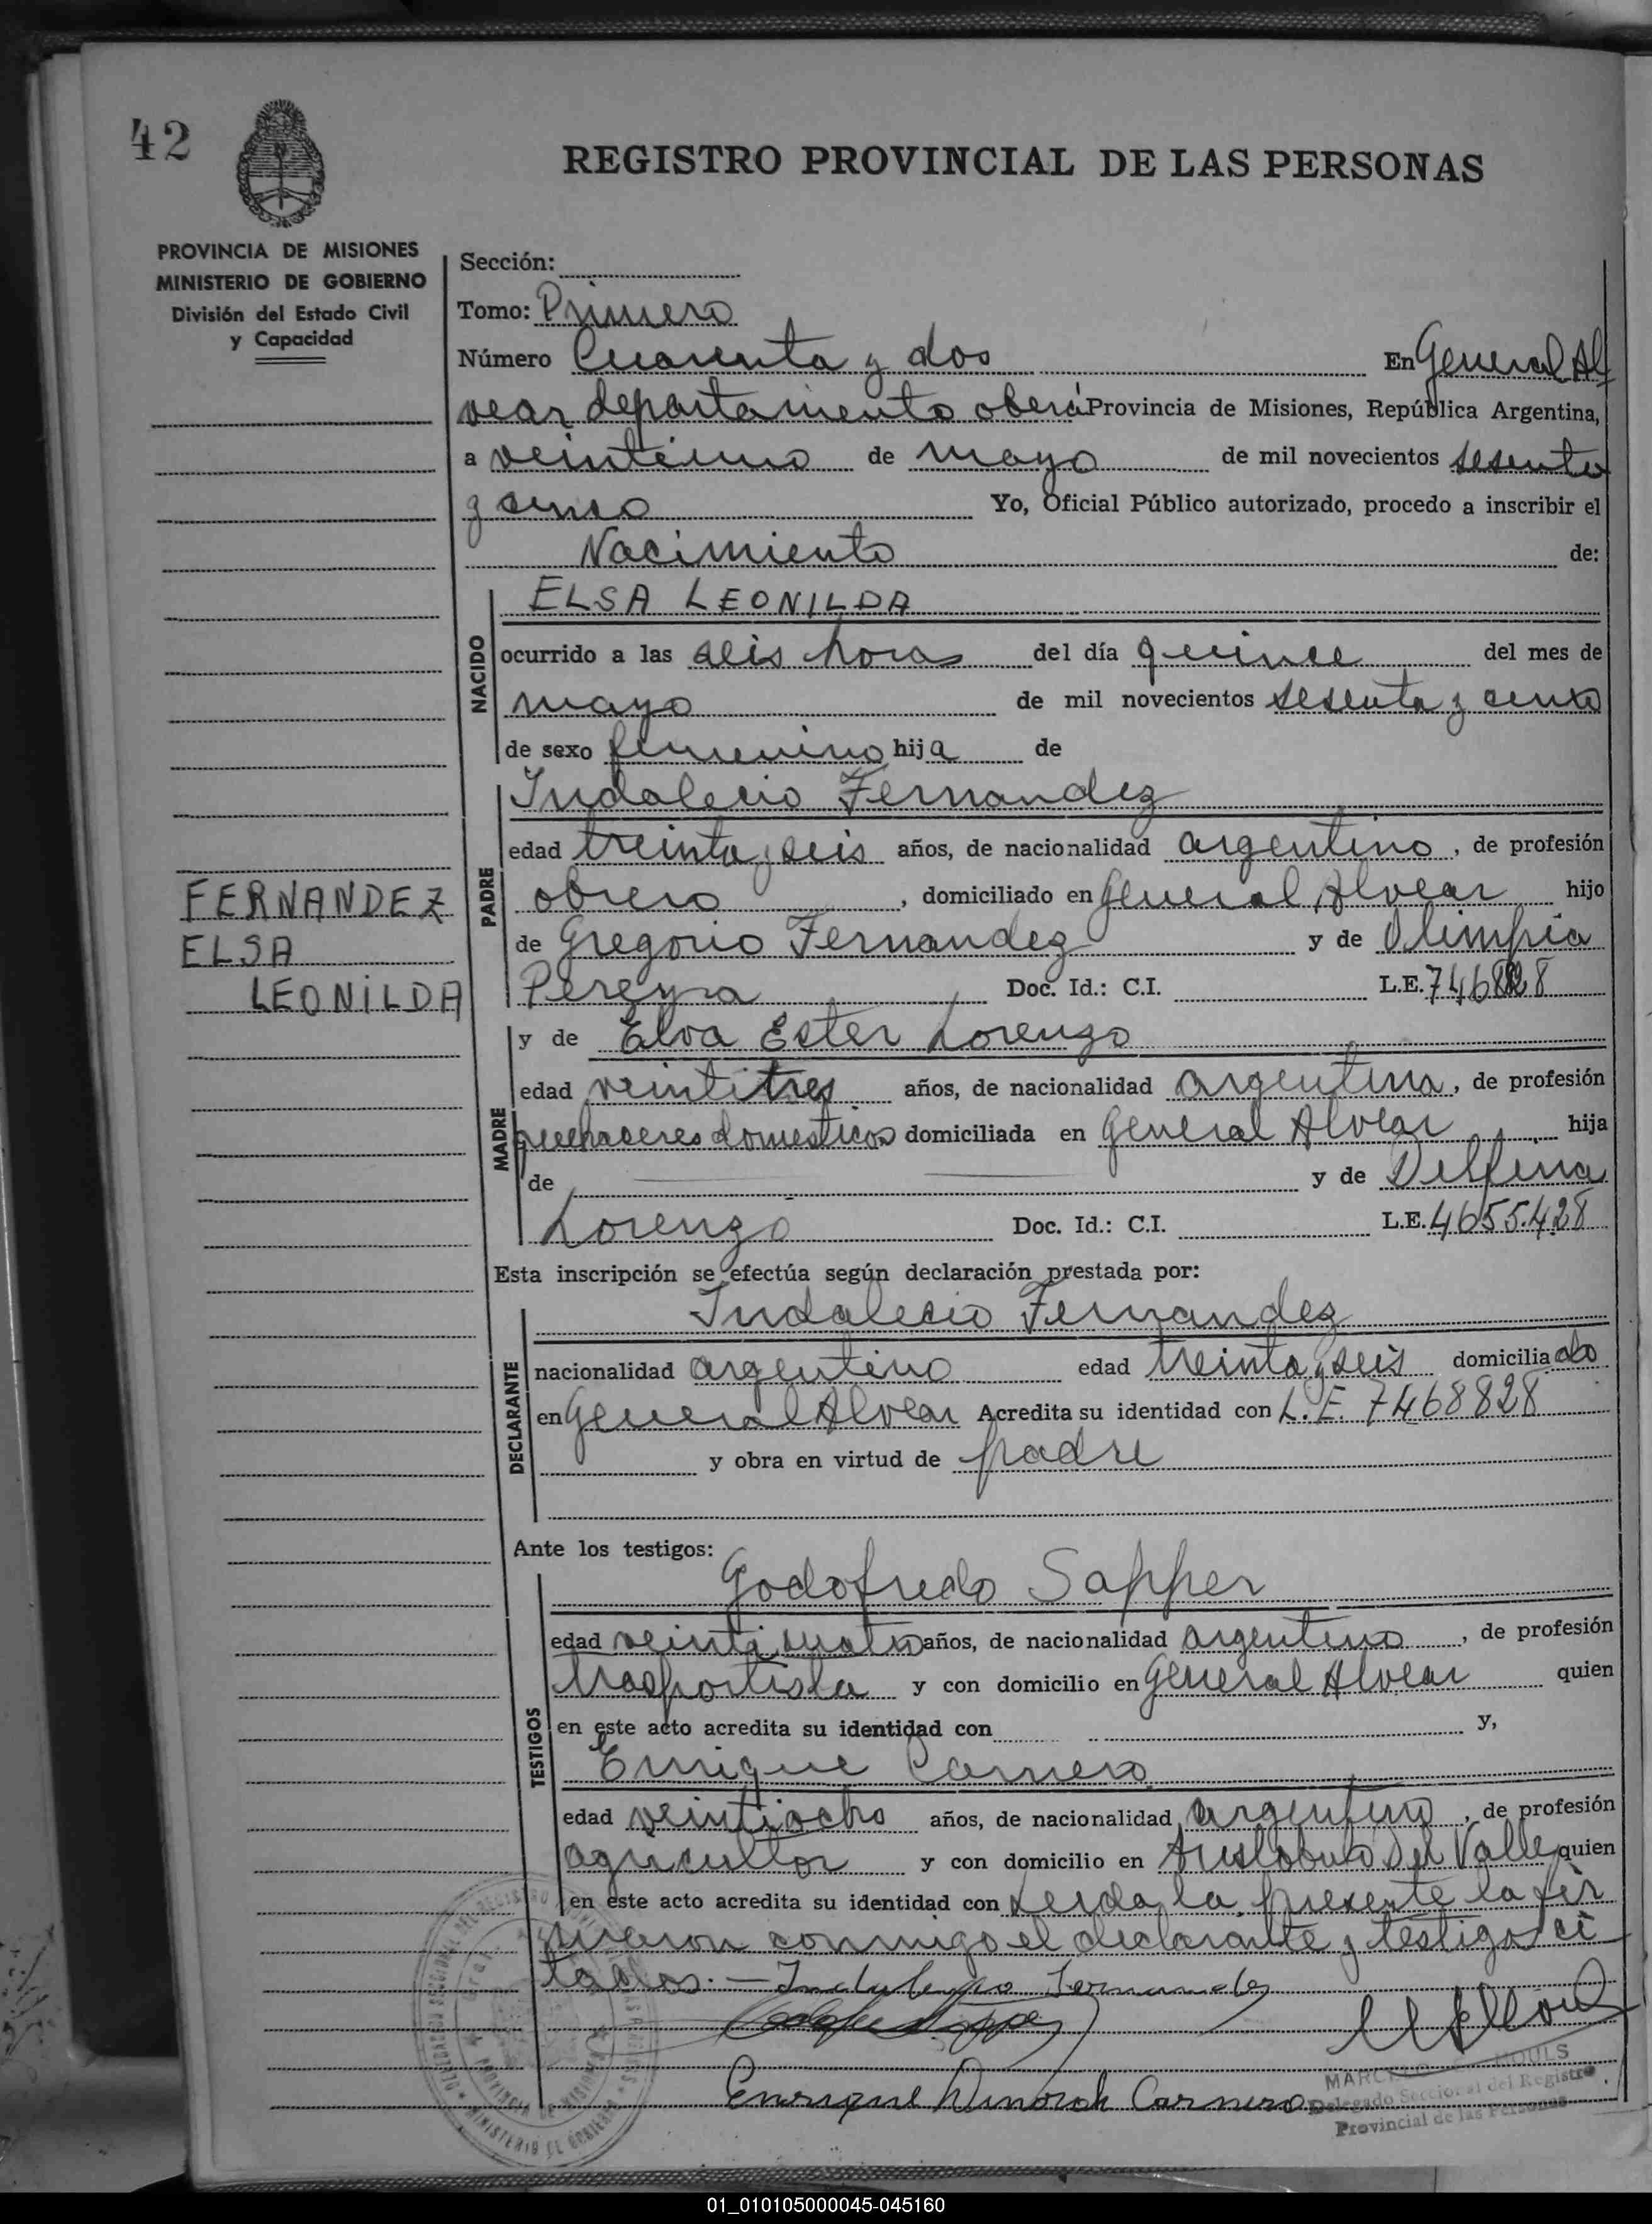 42
REGISTRO PROVINCIAL DE LAS PERSONAS
PROVINCIA DE MISIONES
MINISTERIO DE GOBIERNO
División del Estado Civil
y Capacidad
Sección:
Tomo: Primero
Número Cuarenta y dos En General Al
vear departamento oberá Provincia de Misiones, República Argentina,
a veintiuno de mayo de mil novecientos sesenta
y cinco Yo, Oficial Público autorizado, procedo a inscribir el
Nacimiento de:
NACIDO
ELSA LEONILDA
ocurrido a las seis horas del día quince del mes de
mayo de mil novecientos sesenta y cinco
de sexo femenino hija de
PADRE
Indalecio Fernandez
edad treinta y seis años, de nacionalidad argentino, de profesión
obrero, domiciliado en General Alvear hijo
de Gregorio Fernandez y de Olimpia
Pereyra Doc. Id.: C.I. L.E. 7468828
FERNANDEZ
ELSA
LEONILDA
MADRE
y de Elva Ester Lorenzo
edad veintitres años, de nacionalidad argentina, de profesión
quehaceres domesticos domiciliada en General Alvear hija
de y de Delfina
Lorenzo Doc. Id.: C.I. L.E. 4655.428
Esta inscripción se efectúa según declaración prestada por:
DECLARANTE
Indalecio Fernandez
nacionalidad argentino edad treinta y seis domiciliado
en General Alvear Acredita su identidad con L.E. 7468828
y obra en virtud de padre
Ante los testigos:
TESTIGOS
Godofredo Sapper
edad veinticuatro años, de nacionalidad argentino, de profesión
trasportista y con domicilio en General Alvear quien
en este acto acredita su identidad con y,
Enrique Carnero
edad veintiocho años, de nacionalidad argentino, de profesión
agricultor y con domicilio en Aristobulo Del Valle quien
en este acto acredita su identidad con Leida la presente la fir
maron conmigo el declarante y testigos ci
tados.- Indalecio Fernandez
Enrique Carnero
MARCELO MOULS
Delegado Seccional del Registro
Provincial de las Personas
01_010105000045-045160